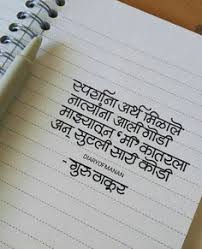 स्पर्शाना अर्थ मिळाले
नात्यांना आली गोडी
माझ्यातन 'मी' कातरला
अन् सुटली सारी कोडी
DIARYOFMANAN
- गुरु ठाकूर